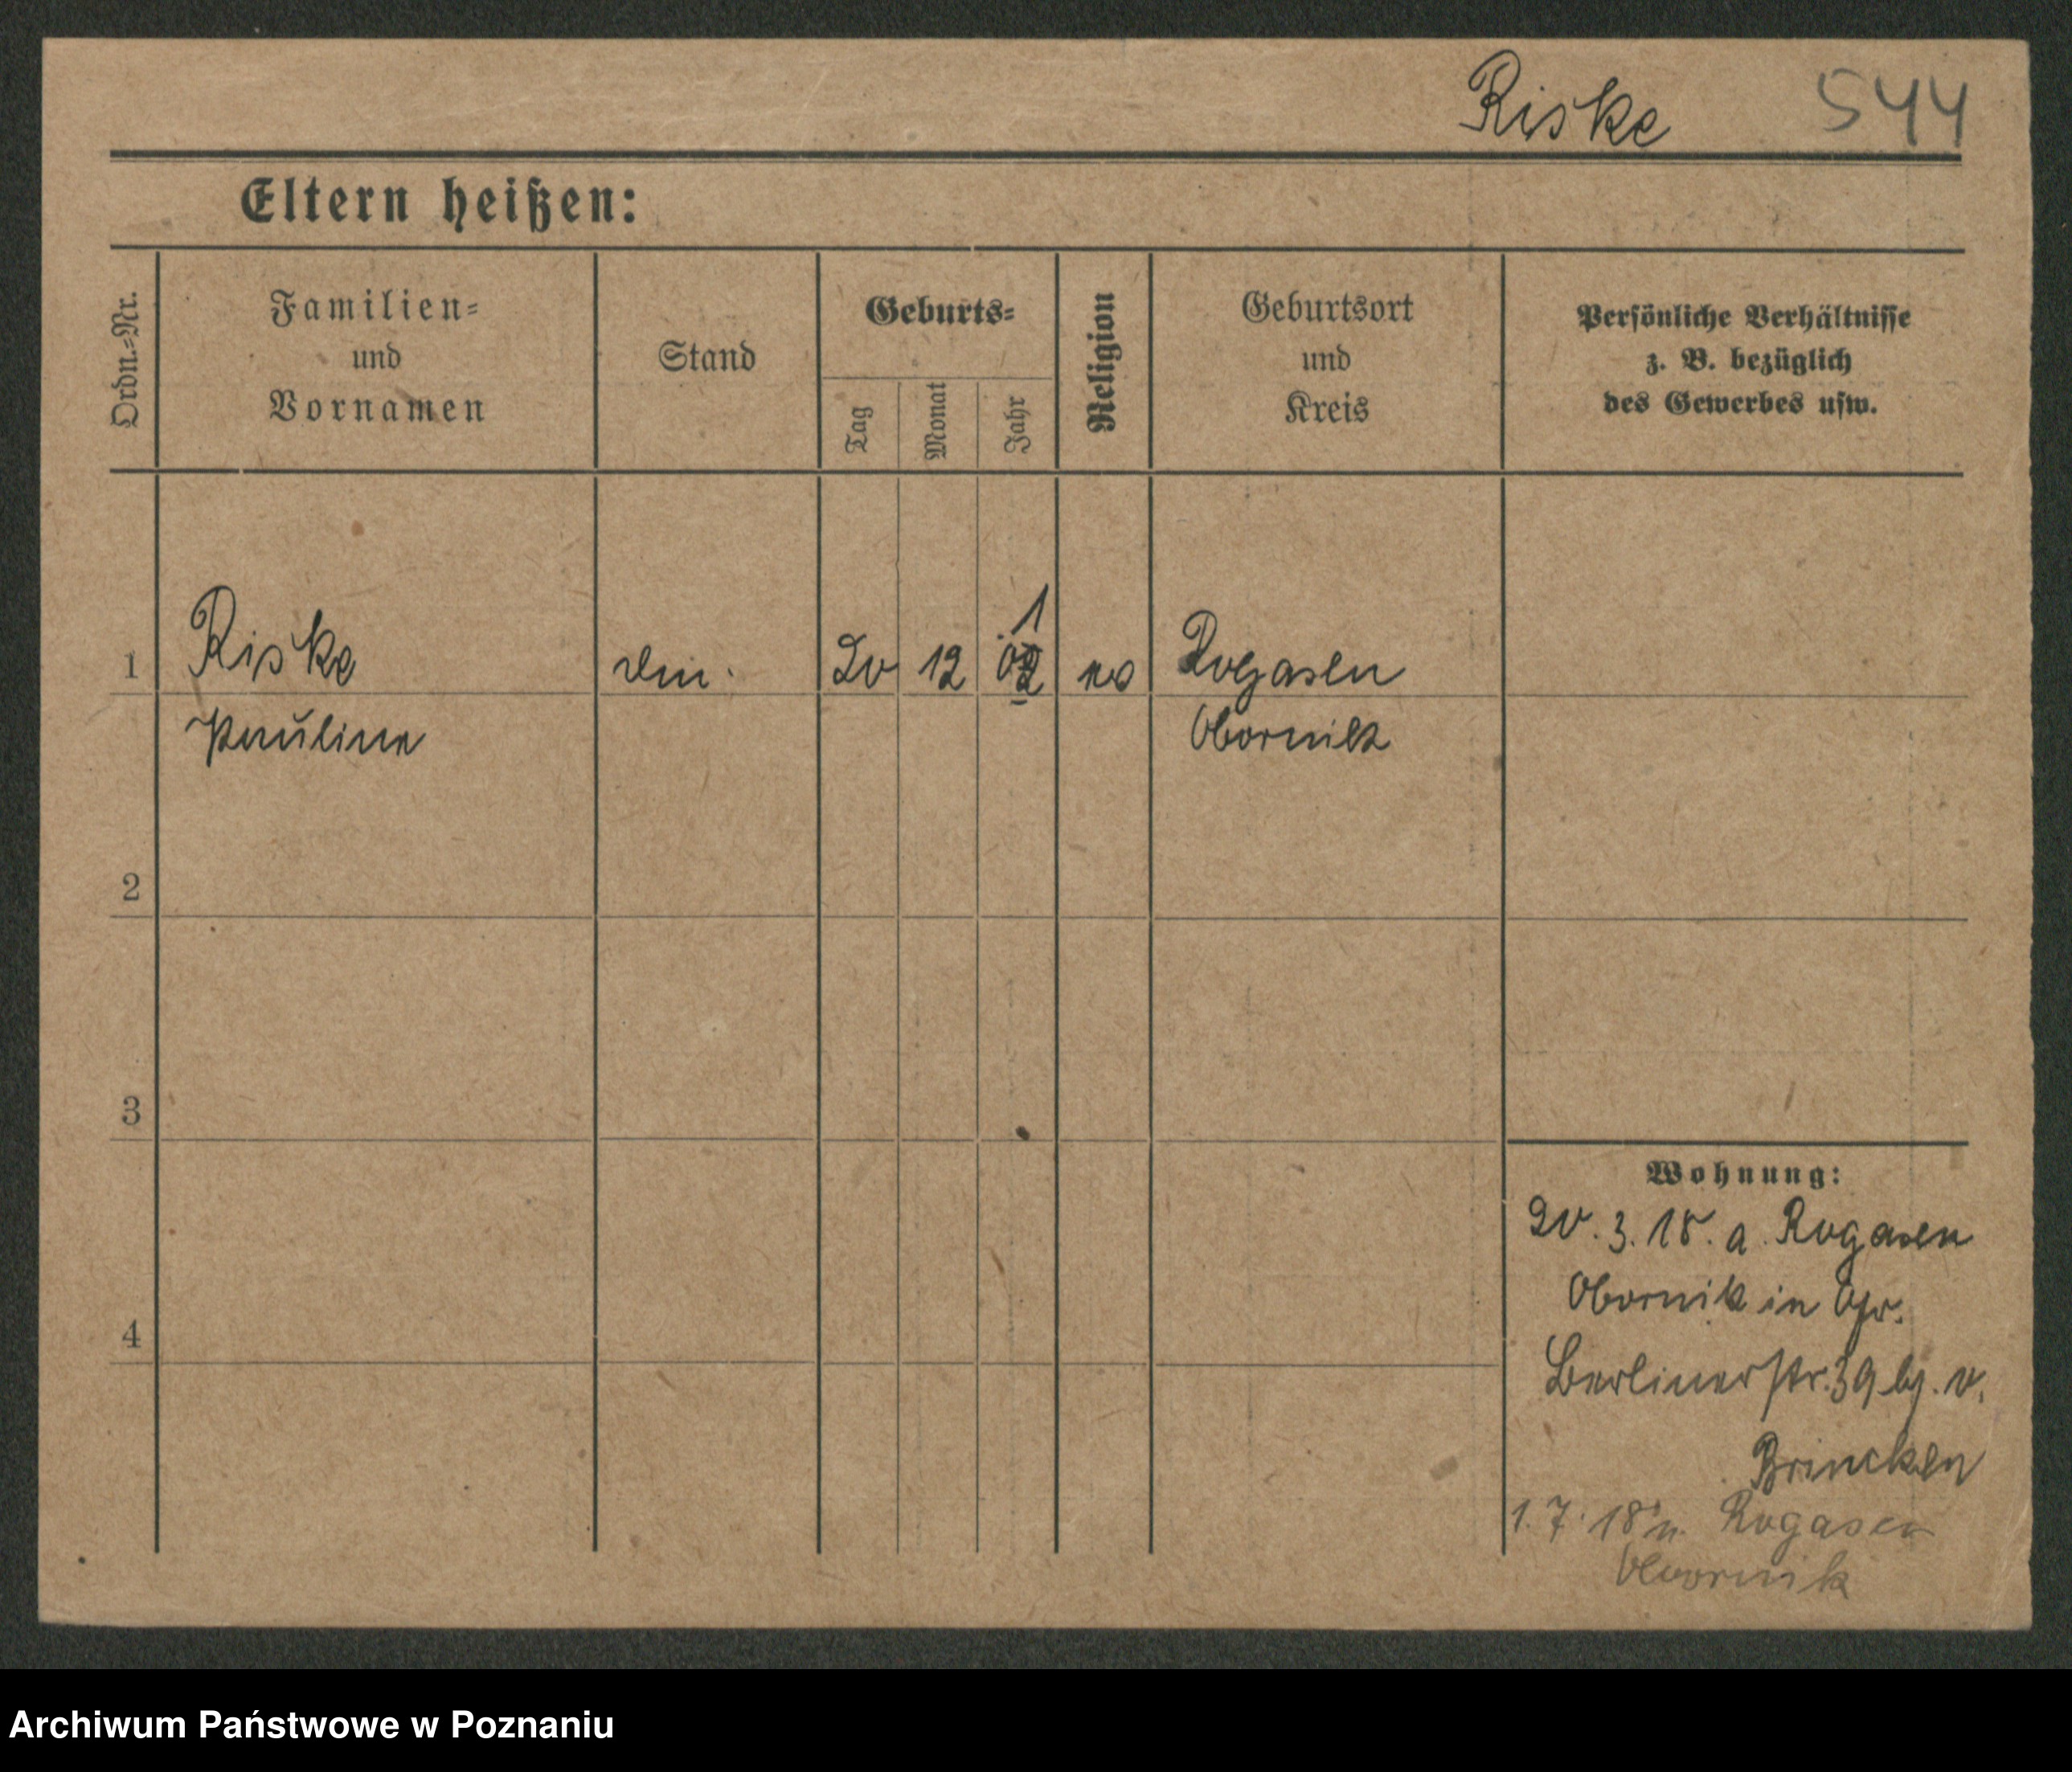 Riske 544
Eltern heißen:
Ordn.-Nr.
Familien-
und
Vornamen
Stand
Geburts-
Tag
Monat
Jahr
Religion
Geburtsort
und
Kreis
Persönliche Verhältnisse
z. B. bezüglich
des Gewerbes usw.
1 Riske 20 12 Rogasen
Pauline Obornik
2
3
4
Wohnung:
20. 3. 18. a. Rogasen
Obornik in
Berlinerstr. 39 b. v.
Brincken
1. 7. 18 n. Rogasen
Obornik
Archiwum Państwowe w Poznaniu